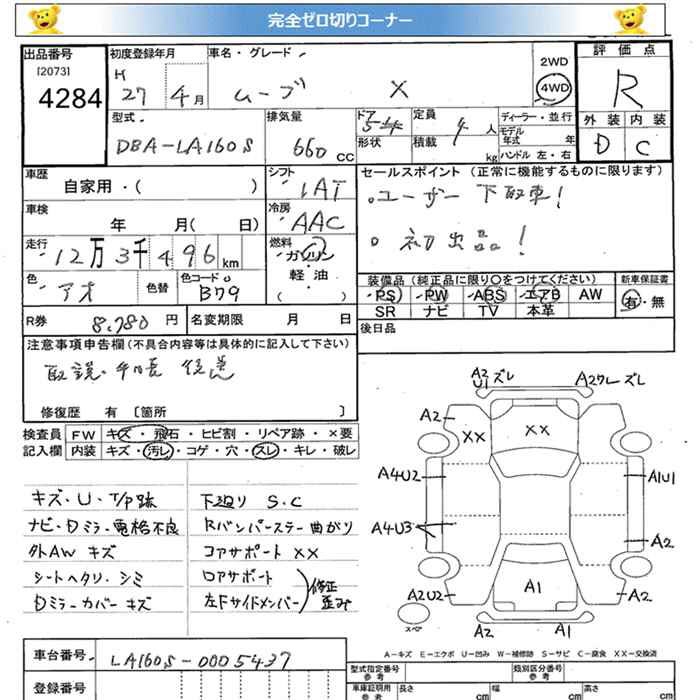 完全ゼロ切りコーナー
出品番号
[2073]
4284
初度登録年月
H 27 4月
車名・グレード
ムーブ X
2WD
4WD
評価点
R
外装 内装
D C
型式
DBA-LA160S
排気量
660 CC
ドア
形状
定員
4人
積載
kg
ディーラー・並行
モデル年式 年
ハンドル 左・右
車歴
自家用・( )
シフト
IAT
冷房
AAC
車検
年 月( 日)
走行
12万3千496km
燃料
ガソリン
軽・油
( )
色
アオ
色替
色コード
B79
セールスポイント (正常に機能するものに限ります)
。ユーザー下取車!
。初出品!
装備品 (純正品に限り○をつけてください)
PS PW ABS エアB AW
SR ナビ TV 本革
新車保証書
有・無
後日品
R券 8,780円
名変期限 月 日
注意事項申告欄 (不具合内容等は具体的に記入して下さい)
取説・手帳 後送
修復歴 有 〔箇所 〕
検査員
記入欄
FW キズ・飛石・ヒビ割・リペア跡・×要
内装 キズ・汚レ・コゲ・穴・スレ・キレ・破レ
キズ・U・T/P跡
ナビ・Dミラー電格不良
外AW キズ
シートヘタリ・シミ
Dミラーカバーキズ
下廻り S.C
Rバンパーステー曲がり
コアサポート XX
ロアサポート
左Fサイドメンバー
修正
歪み
A2
U1 ズレ
A2ワレ ズレ
A2
XX
XX
A2
A4U2
A1U1
A4U3
A2
A2U2
A1
A2
スペア
A2
A1
A-キズ E-エクボ U-凹み W-補修跡 S-サビ C-腐食 XX-交換済
車台番号
LA160S-0005437
登録番号
型式指定番号
参考
類別区分番号
参考
車庫証明用
参考
長さ
cm
幅
cm
高さ
cm